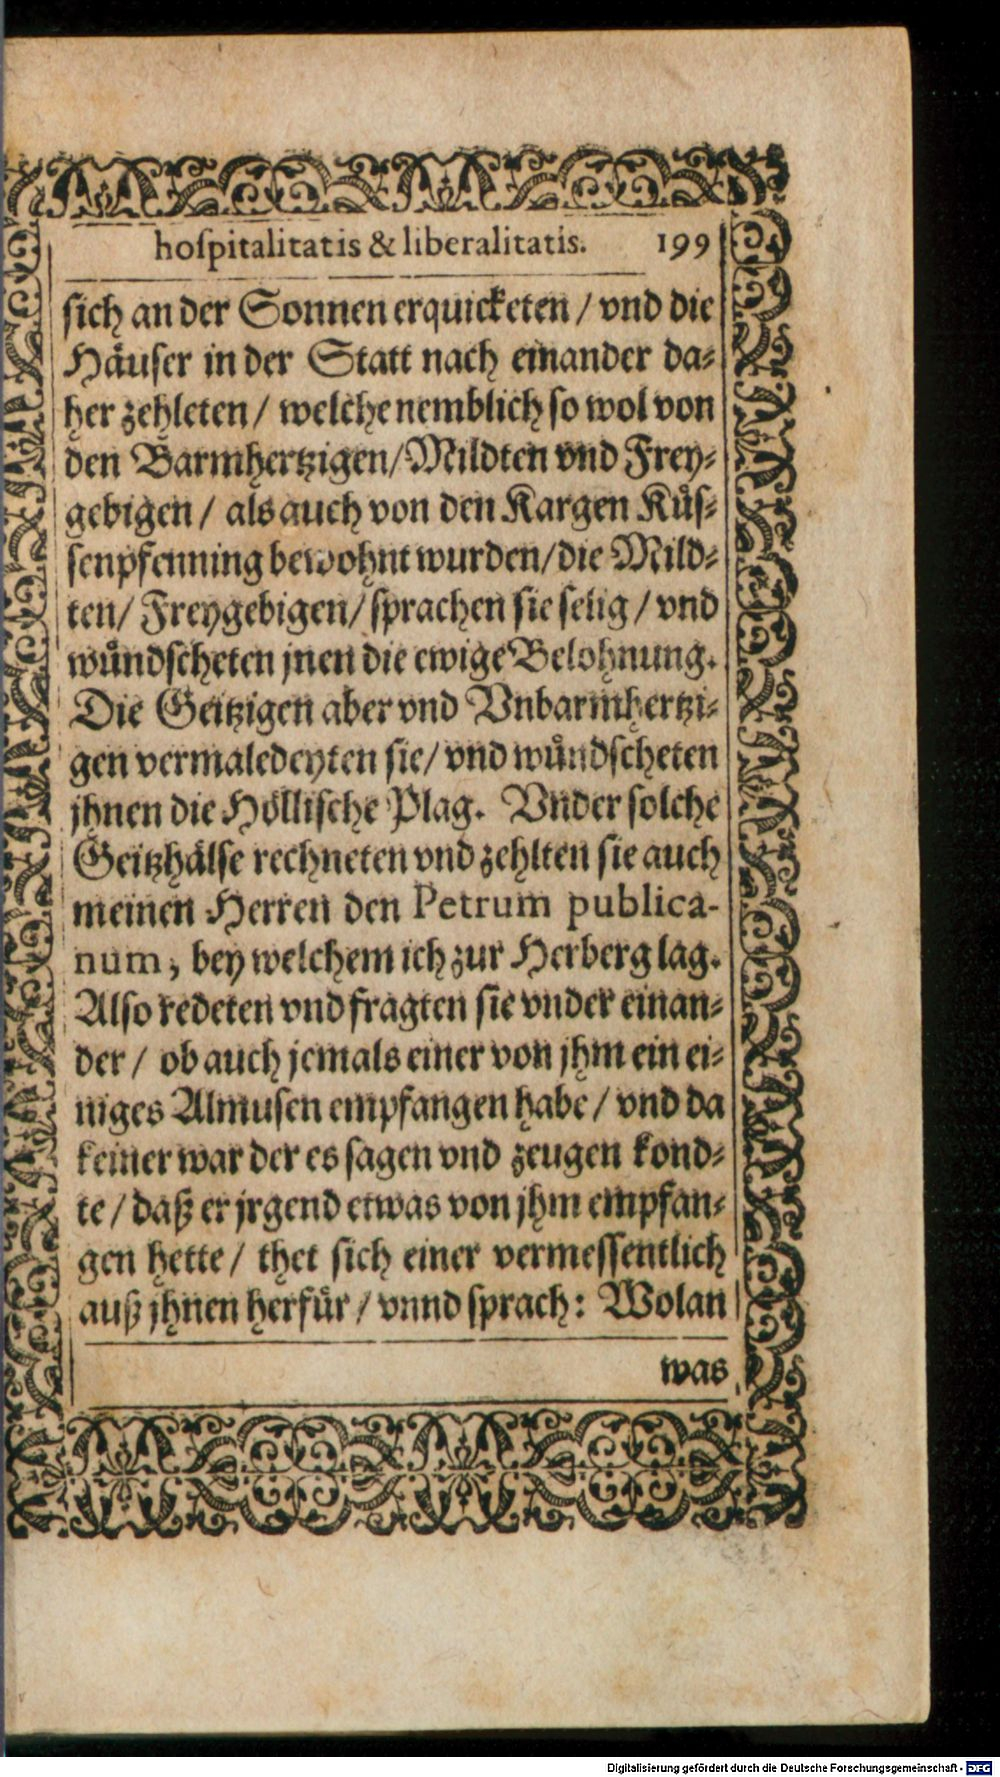 hoſpitalitatis & liberalitatis. 199
ſich an der Sonnen erquicketen / vnd die
Häuſer in der Statt nach einander da⸗
her zehleten / welche nemblich ſo wol von
den Barmhertzigen/Mildten vnd Frey⸗
gebigen / als auch von den Kargen Küſ⸗
ſenpfenning bewohnt wurden/die Mild⸗
ten/ Freygebigen/ ſprachen ſie ſelig / vnd
wündſcheten jnen die ewige Belohnung.
Die Geitzigen aber vnd Vnbarmhertzi⸗
gen vermaledeyten ſie/ vnd wündſcheten
jhnen die Höllische Plag. Vnder ſolche
Geitzhälſe rechneten vnd zehlten ſie auch
meinen Herren den Petrum publica-
num, bey welchem ich zur Herberg lag.
Alſo redeten vnd fragten ſie vnder einan⸗
der / ob auch jemals einer von jhm ein ei⸗
niges Almuſen empfangen habe / vnd da
keiner war der es ſagen vnd zeugen kond⸗
te / daß er jrgend etwas von jhm empfan⸗
gen hette / thet ſich einer vermeſſentlich
auß jhnen herfür / vnnd ſprach: Wolan
was
Digitalisierung gefördert durch die Deutsche Forschungsgemeinschaft - DFG